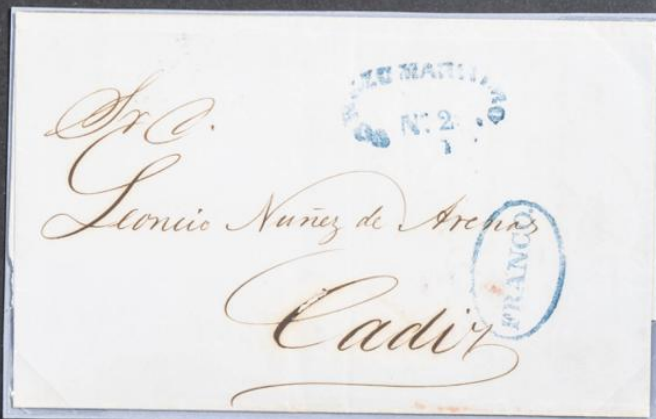 MARITIMO
Nº 2
Sr. D.
Leoncio Nuñez de Arenas
FRANCO.
Cadiz